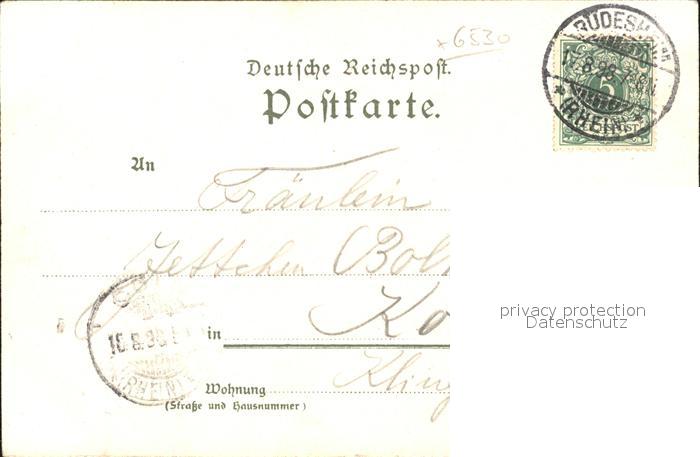 6530
Deutsche Reichspost.
Postkarte.
BÜDESHEIM
(RHEIN)
5
An
Fräulein
Jettchen Bol
Ko
in
Kling
(RHEIN)
Wohnung
(Straße und Hausnummer)
privacy protection
Datenschutz